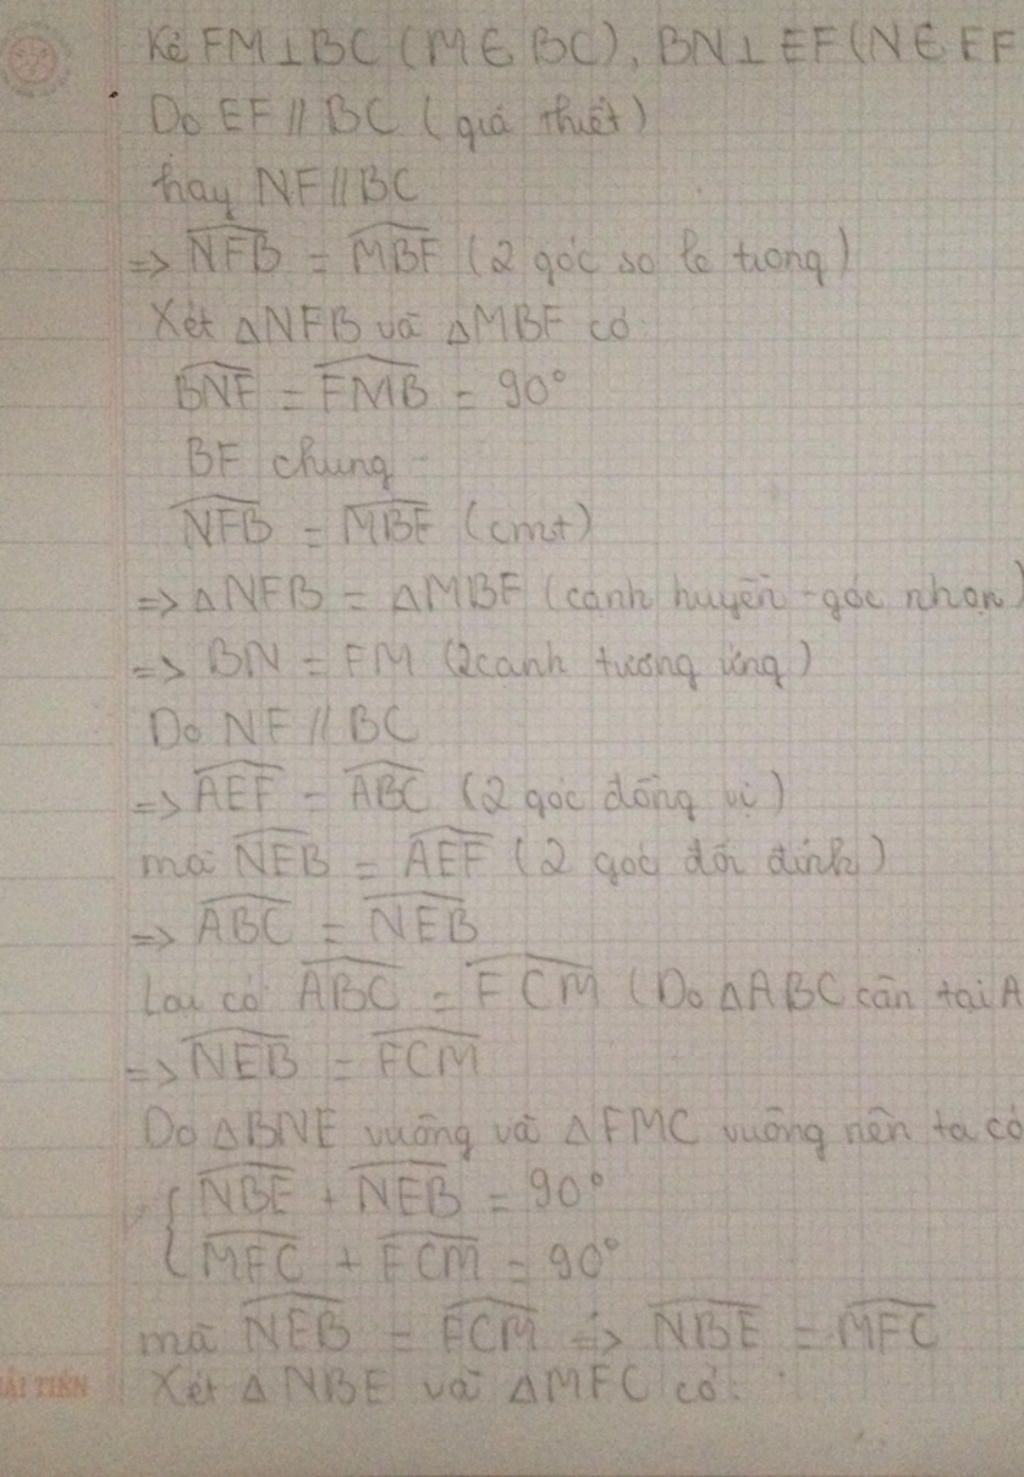 Kẻ FM⊥BC (M∈BC), BN⊥EF (N∈EF
Do EF // BC (giả thiết)
hay NF // BC
=> \widehat{NFB} = \widehat{MBF} (2 góc so le trong)
Xét ΔNFB và ΔMBF có:
\widehat{BNF} = \widehat{FMB} = 90°
BF chung
\widehat{NFB} = \widehat{MBF} (cmt)
=> ΔNFB = ΔMBF (cạnh huyền - góc nhọn)
=> BN = FM (2 cạnh tương ứng)
Do NF // BC
=> \widehat{AEF} = \widehat{ABC} (2 góc đồng vị)
mà \widehat{NEB} = \widehat{AEF} (2 góc đối đỉnh)
=> \widehat{ABC} = \widehat{NEB}
Lại có \widehat{ABC} = \widehat{FCM} (Do ΔABC cân tại A
=> \widehat{NEB} = \widehat{FCM}
Do ΔBNE vuông và ΔFMC vuông nên ta có
{ \widehat{NBE} + \widehat{NEB} = 90°
\widehat{MFC} + \widehat{FCM} = 90°
mà \widehat{NEB} = \widehat{FCM} => \widehat{NBE} = \widehat{MFC}
HẢI TIẾN
Xét ΔNBE và ΔMFC có: